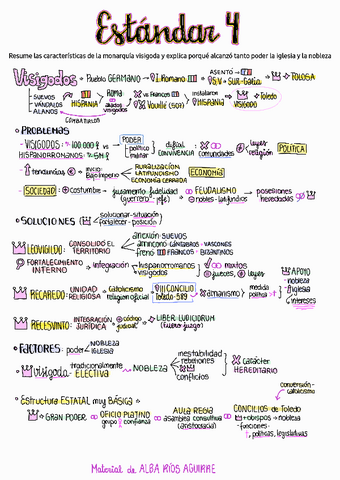 Estándar 4
Resume las características de la monarquía visigoda y explica porqué alcanzó tanto poder la iglesia y la nobleza
Visigodos
Pueblo GERMANO
I. Romano
ASENTÓ
SV - SUR-Galia
TOLOSA
SUEVOS
VÁNDALOS
ALANOS
HISPANIA
ROMA
visigodos
vs Francos
Vouillé (507)
instalaron
HISPANIA
Toledo
VISIGODO
PROBLEMAS
VISIGODOS: 100.000 vs
HISPANORROMANOS
PODER
político
militar
difícil
CONVIVENCIA
comunidades
leyes
religión
POLÍTICA
tendencias
inicio
Bajo imperio
RURALIZACIÓN
LATIFUNDISMO
ECONOMÍA CERRADA
ECONOMÍA
SOCIEDAD
costumbre
juramento fidelidad
(guerrero-jefe)
FEUDALISMO
nobles-latifundios
posesiones
heredadas
SOLUCIONES
solucionar-situación
fortalecer-posición
LEOVIGILDO: CONSOLIDÓ EL
TERRITORIO
anexión SUEVOS
arrinconó CÁNTABROS - VASCONES
frenó FRANCOS - BIZANTINOS
FORTALECIMIENTO
INTERNO
integración
hispanorromanos
visigodos
mixtos
jueces,
leyes
RECAREDO: UNIDAD
RELIGIOSA
Catolicismo
religión oficial
III CONCILIO
Toledo-589
arrianismo
medida
política
APOYO
nobleza
iglesia
intereses
RECESVINTO: INTEGRACIÓN
JURÍDICA
código
judicial
LIBER IUDICIORUM
(Fuero juzgo)
FACTORES: poder
NOBLEZA
IGLESIA
visigoda
tradicionalmente
ELECTIVA
NOBLEZA
inestabilidad
rebeliones
conflictos
carácter
HEREDITARIO
Estructura ESTATAL muy BÁSICA
conversión-
catolicismo
GRAN PODER
OFICIO PLATINO
grupo confianza
AULA REGIA
asamblea consultiva
(aristocracia)
CONCILIOS de Toledo
+ obispos + nobleza
- funciones:
políticas, legislativas
Material de ALBA RÍOS AGUIRRE